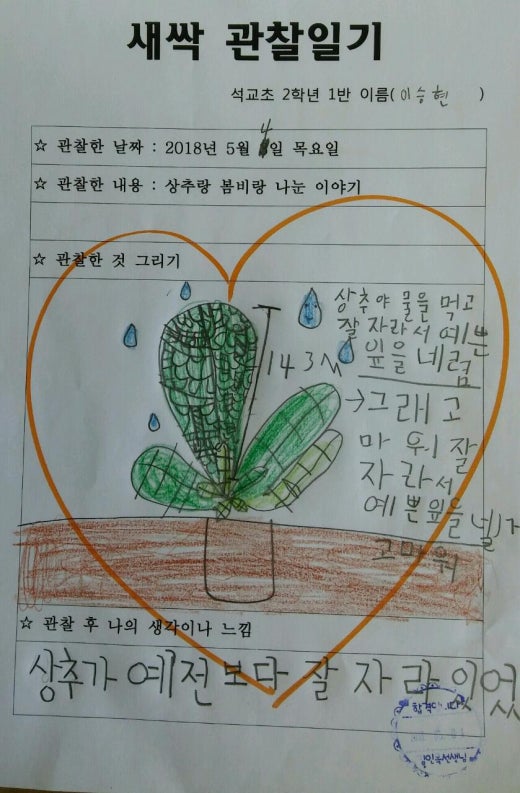 새싹 관찰일기
석교초 2학년 1반 이름( 이승현 )
☆ 관찰한 날짜 : 2018년 5월 4일 목요일
☆ 관찰한 내용 : 상추랑 봄비랑 나눈 이야기
☆ 관찰한 것 그리기
상추야 물을 먹고
잘 자라서 예쁜
잎을 네렴
143M
→그래 고
마워 잘
자라서
예쁜잎을 넬게
고마워
☆ 관찰 후 나의 생각이나 느낌
상추가 예전보다 잘 자라 잇었